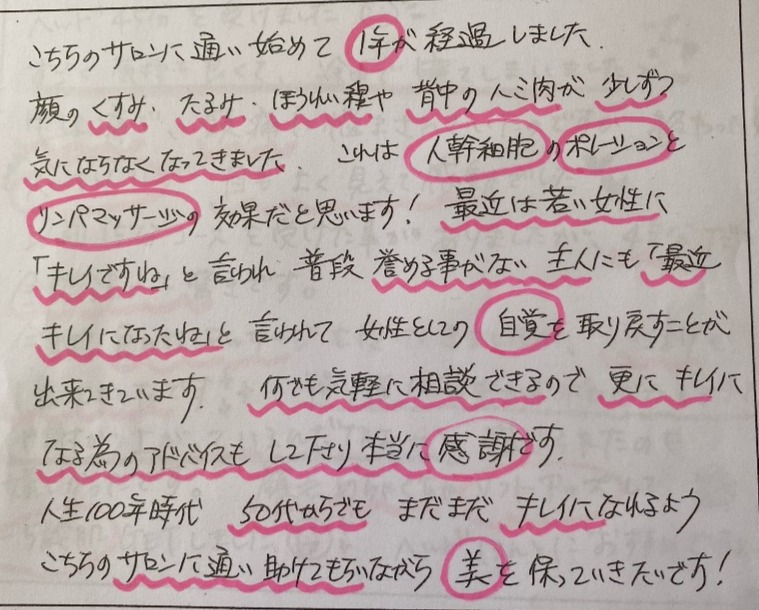 こちらのサロンに通い始めて 1年が経過しました.
顔のくすみ. たるみ. ほうれい線や 背中のハミ肉が 少しずつ
気にならなくなってきました. これは 人幹細胞のポレーションと
リンパマッサージの 効果だと思います! 最近は若い女性に
「キレイですね」と 言われ 普段 誉める事がない 主人にも「最近
キレイになったね」と 言われて 女性としての 自覚を取り戻すことが
出来てきています. 何でも気軽に相談できるので 更に キレイに
なる為のアドバイスも して下さり 本当に感謝です.
人生100年時代 50代からでも まだまだ キレイになれるよう
こちらのサロンに通い 助けてもらいながら 美を保っていきたいです!